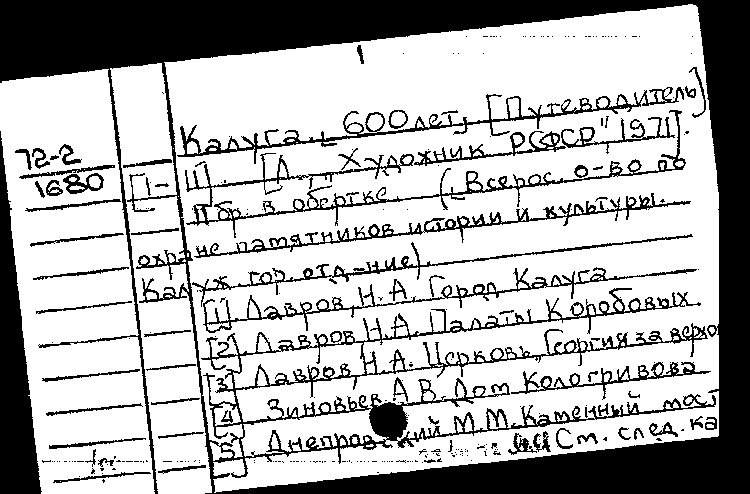 Калуга. 600 лет. [Путеводитель]
72-2
1680
[1-11]. [Л., „Художник РСФСР" 1971].
11 бр. в обертке. (Всерос. о-во по
охране памятников истории и культуры.
Калуж. гор. отд-ние).
[1]. Лавров, Н.А. Город Калуга.
[2]. Лавров Н.А. Палаты Коробовых.
[3]. Лавров, Н.А. Церковь „Георгия за верхо
[4]. Зиновьев А.В. Дом Кологривова
[5]. Днепровский М.М. Каменный мост
См. след. ка